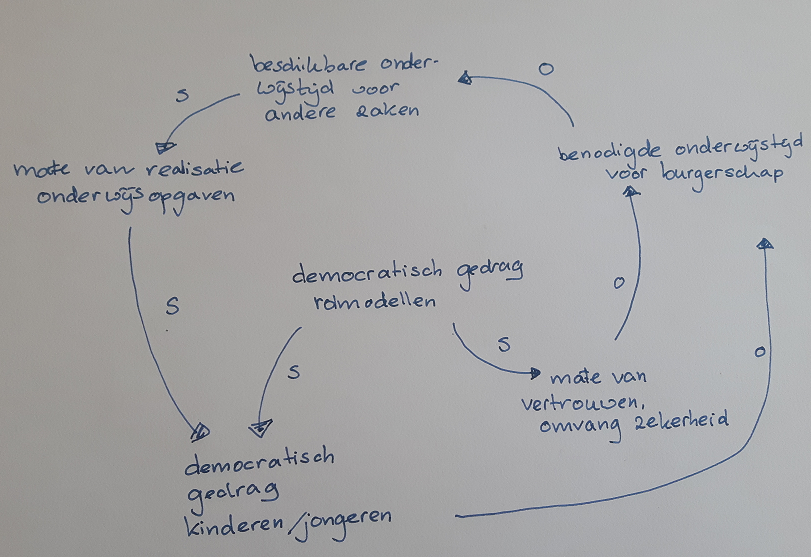 beschikbare onder-
wijstijd voor
andere zaken
S
O
benodigde onderwijstijd
voor burgerschap
mate van realisatie
onderwijsopgaven
S
democratisch gedrag
rolmodellen
S
S
O
O
mate van
vertrouwen,
omvang zekerheid
democratisch
gedrag
kinderen/jongeren